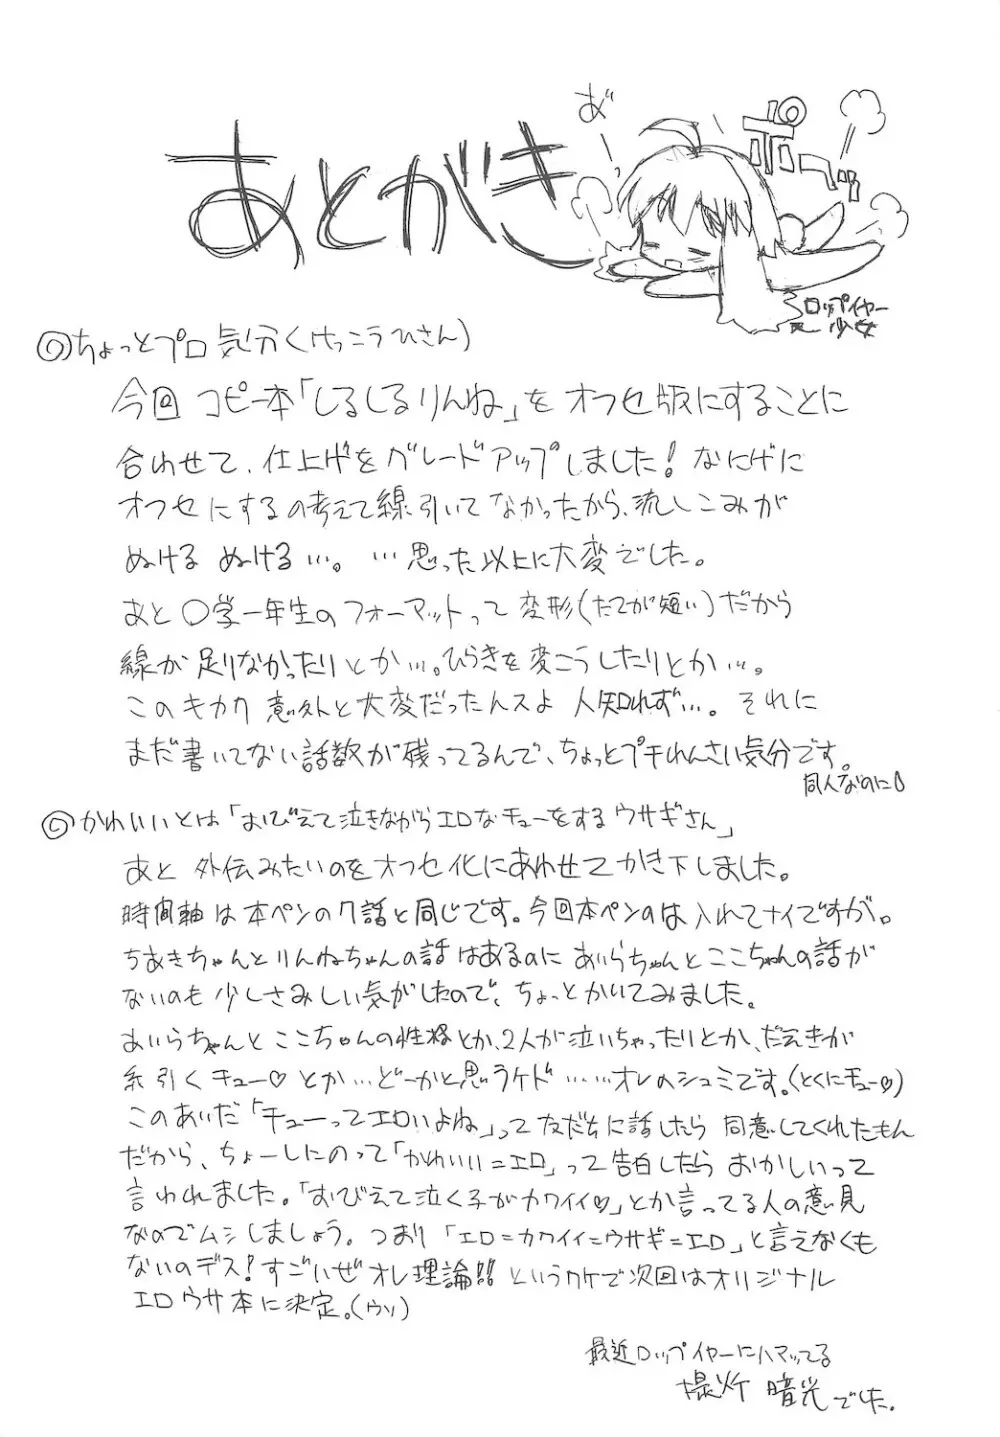 あとがき
あ゛
ポヘッ
ロップイヤー
少女
◎ちょっとプロ気分<(けっこうひさん)
今回 コピー本「しるしるりんね」を オフセ版にすることに
合わせて、仕上げをグレードアップしました! なにげに
オフセにするの考えて線引いてなかったから、流しこみが
ぬける ぬける…。 …思った以上に大変でした。
あと〇学一年生のフォーマットって 変形(たてが短い)だから
線が足りなかったりとか…。ひらきを変こうしたりとか…。
このキカク 意外と大変だったんスよ 人知れず…。 それに
まだ書いてない話数が残ってるんで、ちょっとプチれんさい気分です。
同人なのに
◎かわいいとは「おびえて泣きながらエロなチューをするウサギさん」
あと 外伝みたいのをオフセ化にあわせてかき下しました。
時間軸は本ペンの7話と同じです。今回本ペンのは入れてナイですが。
ちあきちゃんとりんねちゃんの話はあるのに あいらちゃんと ここちゃんの話が
ないのも少しさみしい気がしたので、ちょっとかいてみました。
あいらちゃんと ここちゃんの性格とか、2人が泣いちゃったりとか、だえきが
糸引くチュー♡ とか…どーかと思うケド……オレのシュミです。(とくにチュー♡)
このあいだ「チューってエロいよね」って友だちに話したら 同意してくれたもん
だから、ちょーしにのって「かわいい=エロ」って告白したら おかしいって
言われました。「おびえて泣く子がカワイイ♡」とか言ってる人の意見
なのでムシしましょう。 つまり「エロ=カワイイ=ウサギ=エロ」と言えなくも
ないのデス!すごいぜオレ理論!! というワケで次回はオリジナル
エロウサ本に決定。(ウソ)
最近ロップイヤーにハマってる
暗光でした。